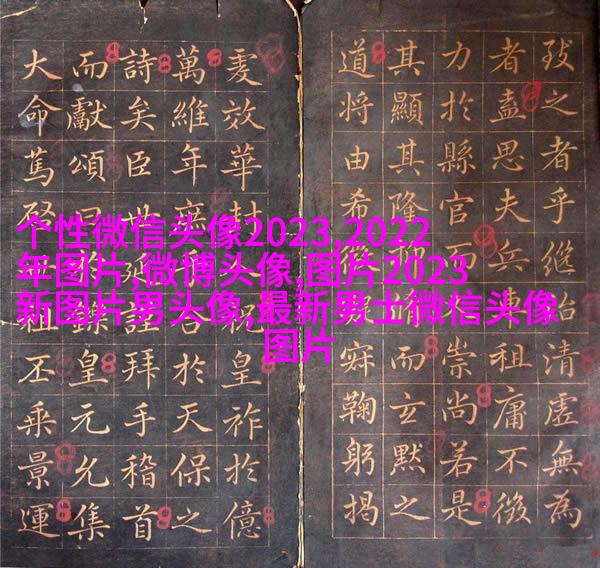 之者乎継始清虛無為
者盍思夫兵車租庸不徵
力於縣官而崇尚若是
其顯其隆而玄默之
道将由希鞠躬揭
效華封祝皇祚於億
萬維年合於天保之
詩矣臣世謹拜手稽首
而獻頌曰鑠皇元允集
大命篤祖丕乘景運
个性微信头像2023,2022
年图片,微博头像,图片2023
新图片男头像,最新男士微信头像
图片